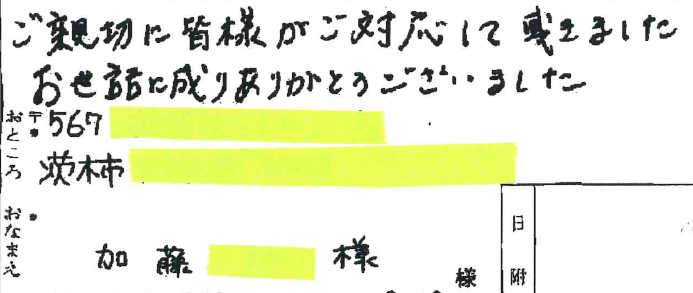 ご親切に皆様がご対応して戴きました
お世話に成りありがとうございました
〒567
おところ
茨木市
おなまえ
加藤 様
様
日附